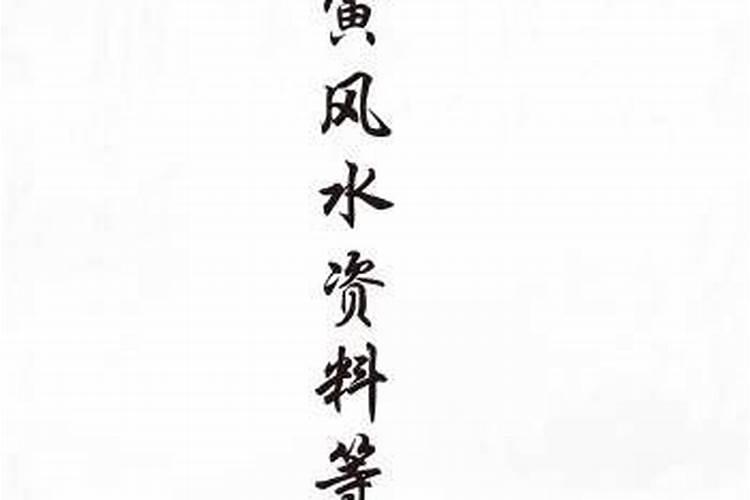 寅风水资料等